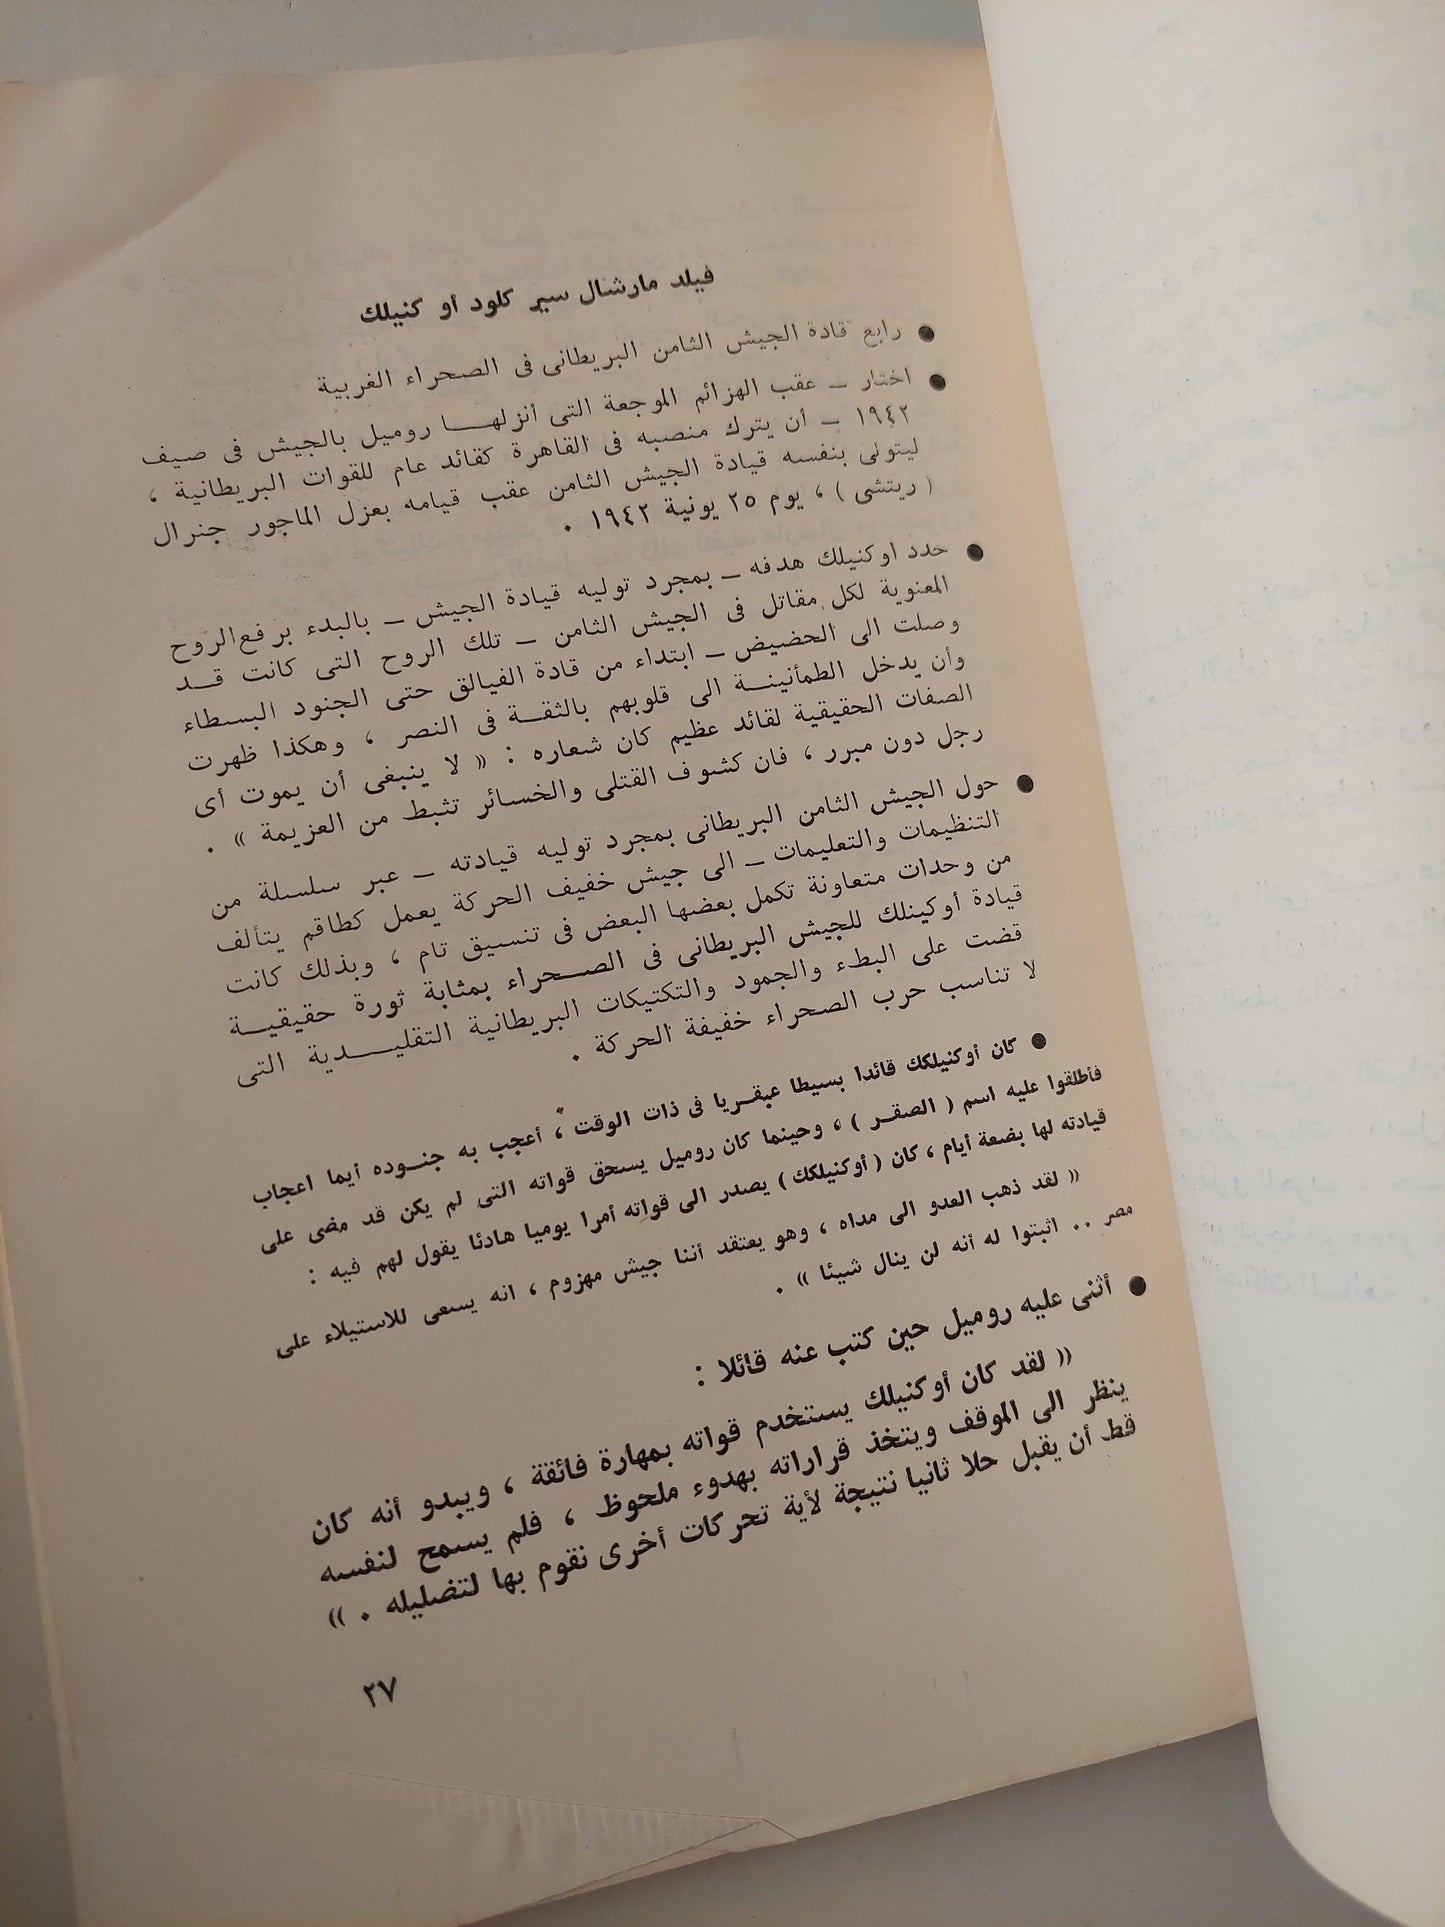 فيلد مارشال سير كلود أو كنيلك
● رابع قادة الجيش الثامن البريطانى فى الصحراء الغربية
● اختار ــ عقب الهزائم الموجعة التى أنزلهــا روميل بالجيش فى صيف
١٩٤٢ ــ أن يترك منصبه فى القاهرة كقائد عام للقوات البريطانية ،
ليتولى بنفسه قيادة الجيش الثامن عقب قيامه بعزل الماجور جنرال
( ريتشى ) ، يوم ٢٥ يونية ١٩٤٢ .
● حدد أوكنيلك هدفه ــ بمجرد توليه قيادة الجيش ــ بالبدء برفع الروح
المعنوية لكل مقاتل فى الجيش الثامن ــ تلك الروح التى كانت قــد
وصلت الى الحضيض ــ ابتداء من قادة الفيالق حتى الجنود البسطاء
وأن يدخل الطمأنينــة الى قلوبهم بالثقــة فى النصر ، وهكذا ظهرت
الصفات الحقيقية لقائد عظيم كان شعاره : « لا ينبغى أن يموت أى
رجل دون مبرر ، فان كشوف القتلى والخسائر تثبط من العزيمة » .
● حول الجيش الثامن البريطانى بمجرد توليه قيادته ــ عبر سلسلة من
التنظيمات والتعليمات ــ الى جيش خفيف الحركة يعمل كطاقم يتألف
من وحدات متعاونة تكمل بعضها البعض فى تنسيق تام ، وبذلك كانت
قيادة أوكينلك للجيش البريطانى فى الصــحراء بمثابة ثورة حقيقيــة
قضت على البطء والجمود والتكتيكات البريطانية التقليــدية التى
لا تناسب حرب الصحراء خفيفة الحركة .
● كان أوكنيلكك قائدا بسيطا عبقــريا فى ذات الوقت ، أعجب به جنــوده أيما اعجاب
فأطلقوا عليه اسم ( الصقــر ) ، وحينما كان روميل يسحق قواته التى لم يكن قد مضى على
قيادته لها بضعة أيام ، كان ( أوكنيلكك ) يصدر الى قواته أمرا يوميا هادئا يقول لهم فيه :
« لقد ذهب العدو الى مداه ، وهو يعتقد أننا جيش مهزوم ، انه يسعى للاستيلاء على
مصر .. اثبتوا له أنه لن ينال شيئا » .
● أثنى عليه روميل حين كتب عنه قائلا :
« لقد كان أوكنيلك يستخدم قواته بمهارة فائقة ، ويبدو أنه كان
ينظر الى الموقف ويتخذ قراراته بهدوء ملحوظ ، فلم يسمح لنفسه
قط أن يقبل حلا ثانيا نتيجة لأية تحركات أخرى نقوم بها لتضليله . »
٢٧